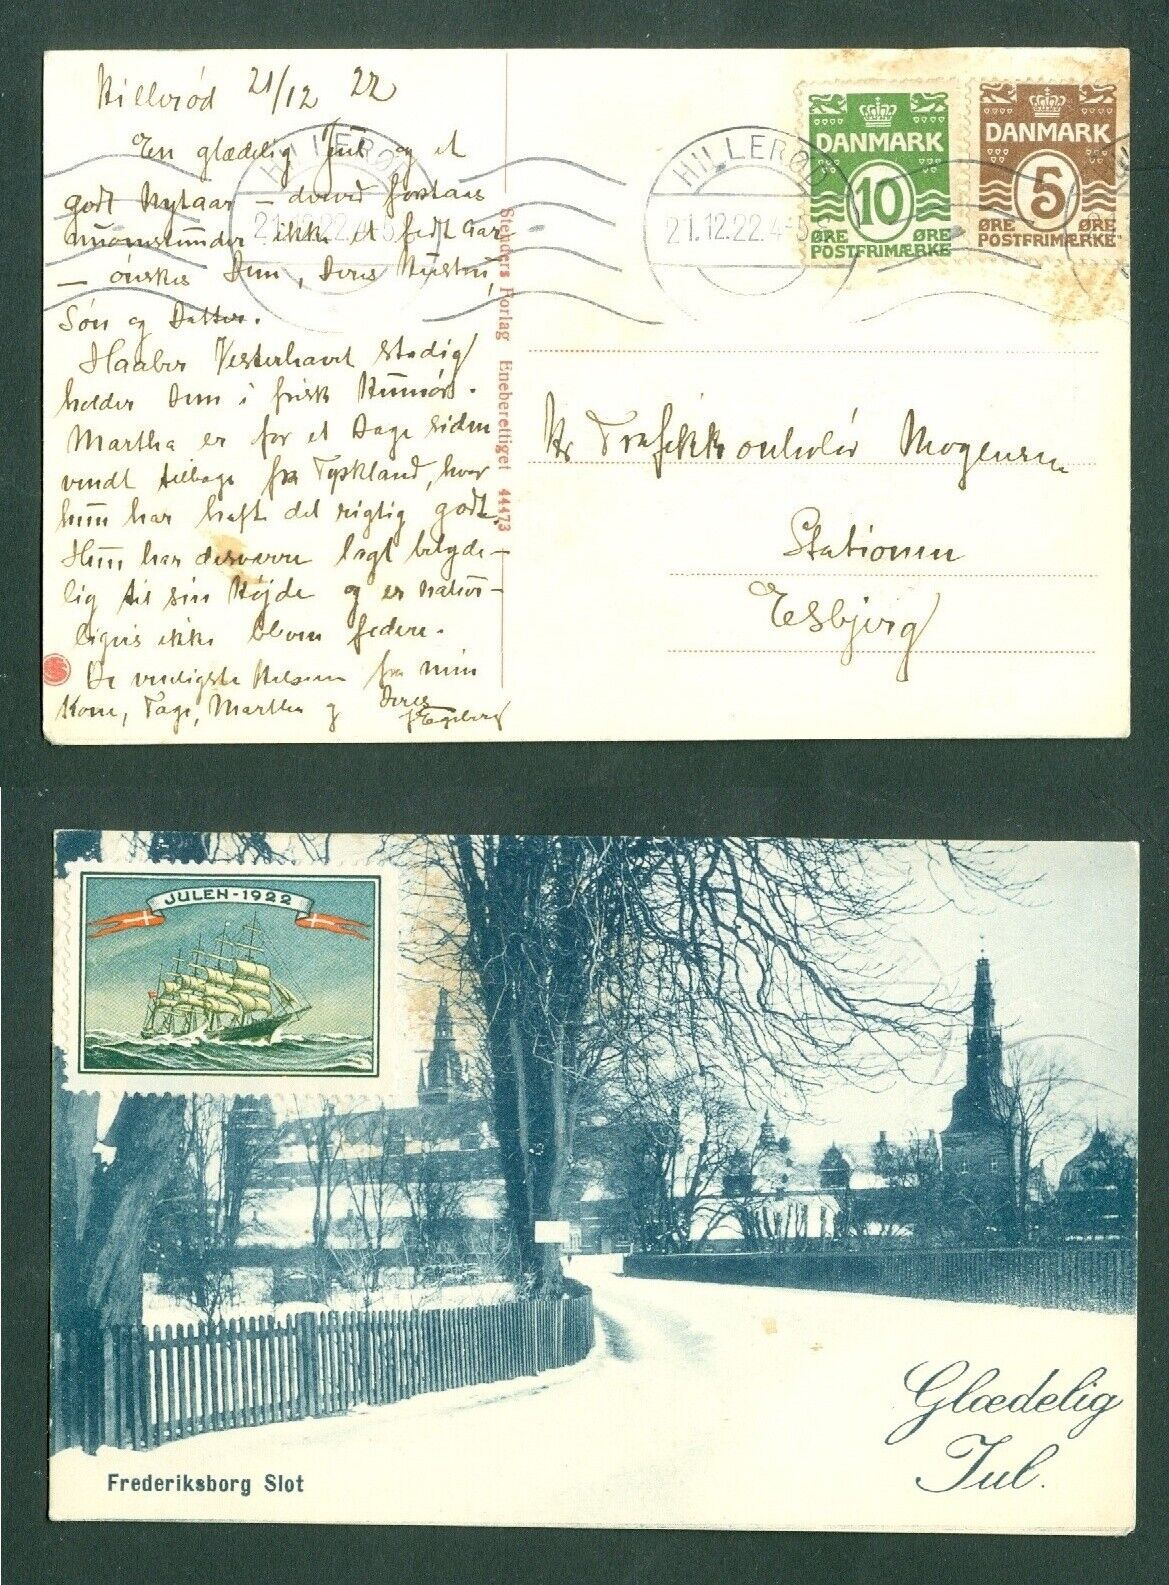 Hillerød 21/12 22
En glædelig Jul og et
godt Nytaar – derved forstaas
nuomstunder ikke et fedt Aar
– ønskes Dem, Deres Hustru,
Søn og Datter.
Haaber Vesterhavet stadig
holder Dem i frisk Humør.
Martha er for et Dage siden
vendt tilbage fra Tyskland, hvor
hun har haft det rigtig godt.
Hun har desværre lagt betyde–
lig til sin Højde og er natur–
ligvis ikke bleven federe.
De venligste Hilsener fra min
Kone, Tage, Martha og Deres
HILLERØD
21.12.22.4-5
Stenders Forlag Eneberettiget 44473
HILLERØD
21.12.22.4-5
DANMARK
10
ØRE ØRE
POSTFRIMÆRKE
DANMARK
5
ØRE ØRE
POSTFRIMÆRKE
Hr Trafikkontrolør Mogensen
Stationen
Esbjerg
JULEN-1922
Glædelig
Jul.
Frederiksborg Slot